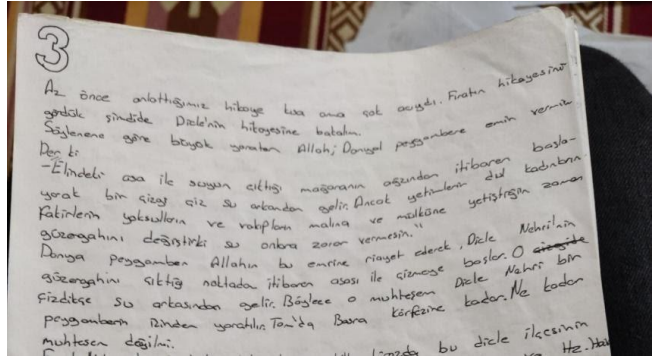 3
Az önce anlattığımız hikaye kısa ama çok acıydı. Fıratın hikayesini
gördük şimdide Dicle'nin hikayesine bakalım.
Söylenene göre büyük yaratan Allah, Danyal peygambere emin vermiş
Der ki
-Elindeki asa ile suyun çıktığı mağaranın ağzından itibaren başla-
yarak bir çizgi çiz su arkandan gelir. Ancak yetimlerin dul kadınların
fakirlerin yoksulların ve vakıfların malına ve mülküne yetiştiğin zaman
güzergahını değiştirki su onlara zarar vermesin."
Danya peygamber Allahın bu emrine riayet ederek, Dicle Nehri'nin
güzergahını çıktığı noktada itibaren asası ile çizmeye başlar. O
çizdikçe su arkasından gelir. Böylece o muhteşem Dicle Nehri bin
peygamberin izinden yaratılır. Tam'da Basra körfezine kadar. Ne kadar
muhteşem değilmi.
bu dicle ilçesinin
Hz.